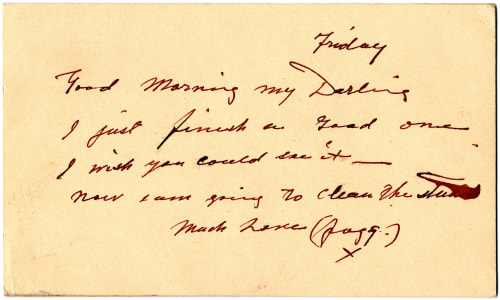 Friday
Good Morning my Darling
I just finish a Good one
I wish you could see it —
now I am going to clean the
Much Love
x